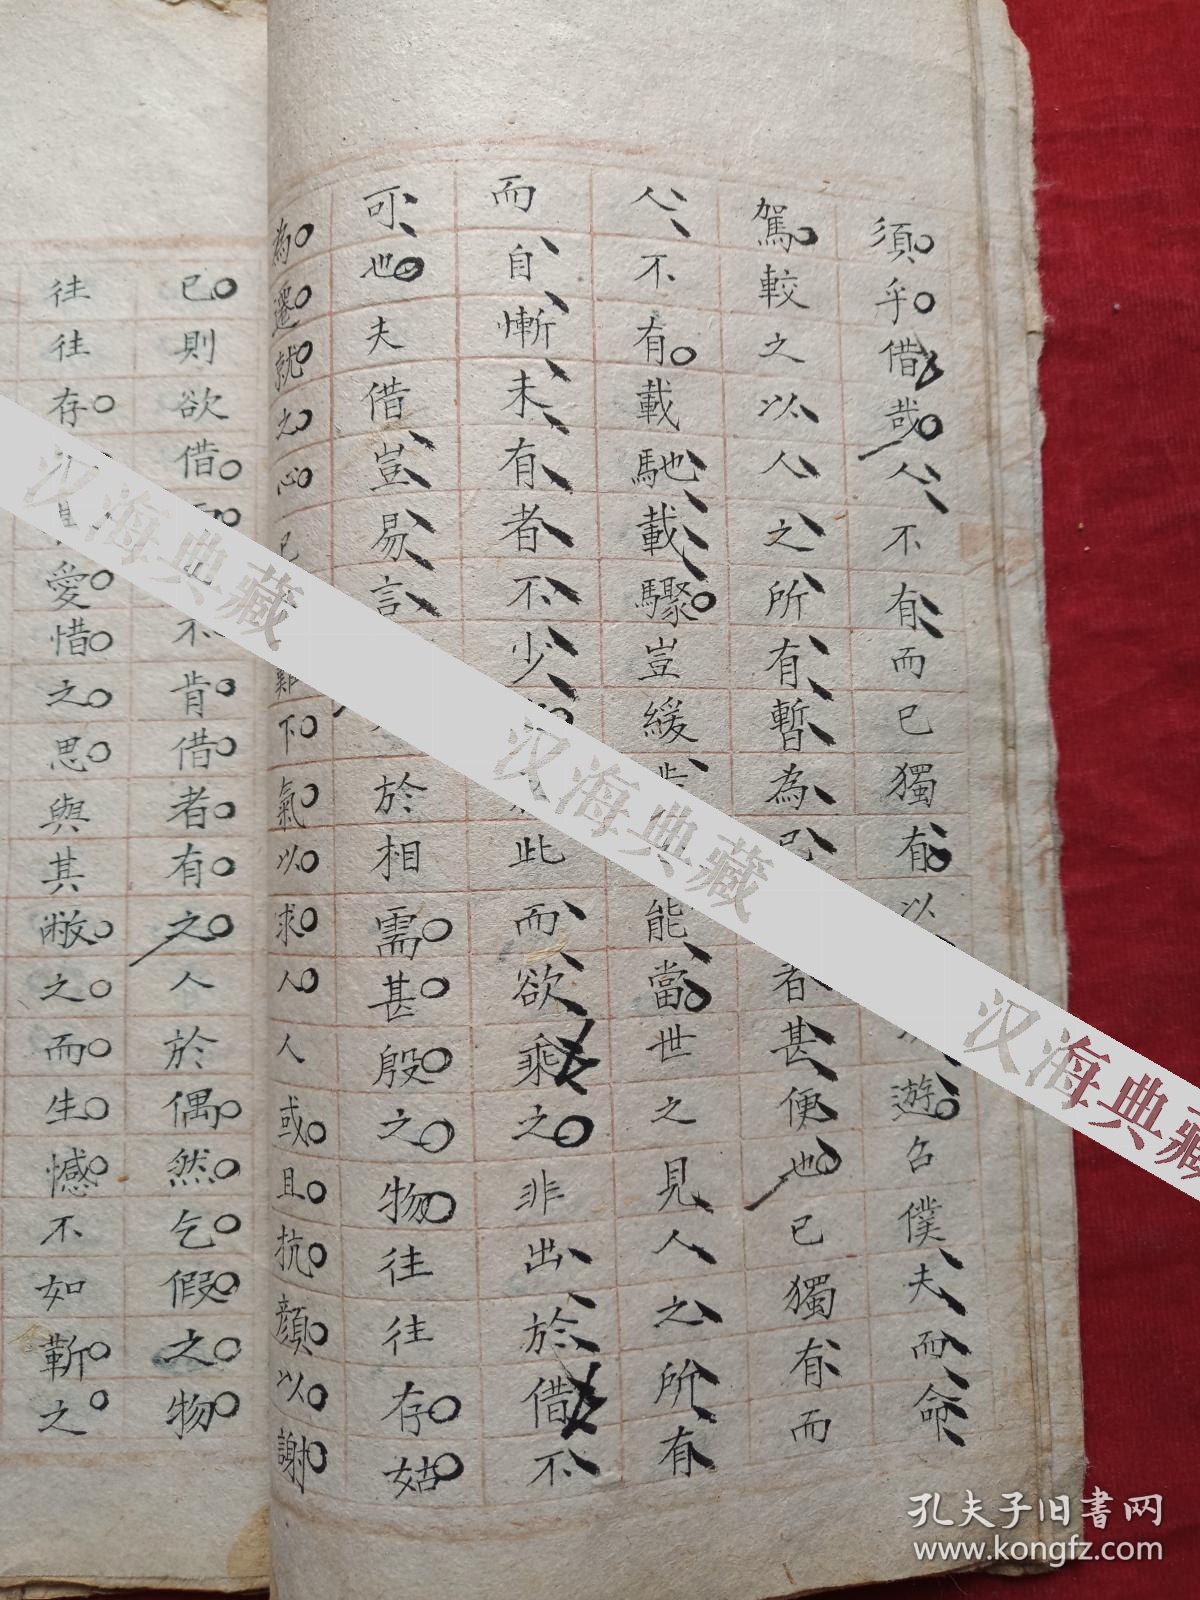 須乎借哉人不有而已獨有以遊召僕夫而命
駕較之以人之所有暫為已者甚便也已獨有而
人不有載馳載驟豈緩能當世之見人之所有
而自慚未有者不少此而欲乘之非出於借不
可也夫借豈易言於相需甚殷之物往往存姑
為遷就之心已難下氣以求人人或且抗顔以謝
已則欲借不肯借者有之人於偶然乞假之物
往往存愛惜之思與其敝之而生憾不如靳之
汉海典藏
汉海典藏
汉海典藏
孔夫子旧书网
www.kongfz.com